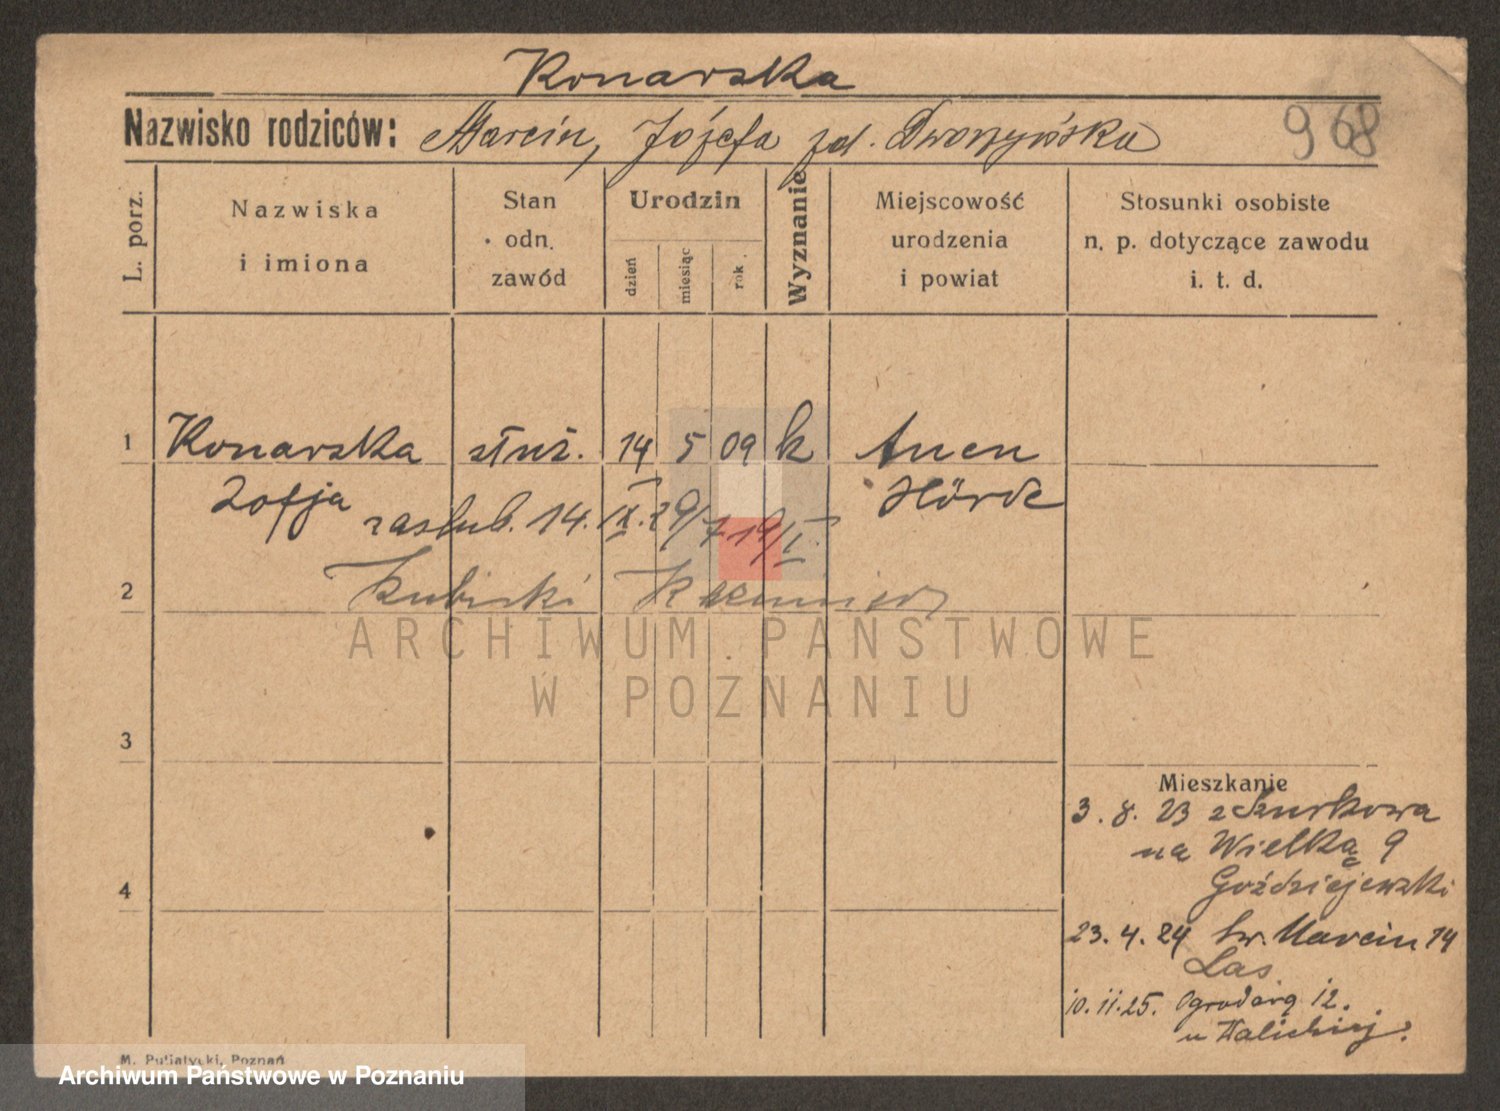 Konarska
Nazwisko rodziców: Marcin, Józefa zd.
968
L. porz.
Nazwiska
i imiona
Stan
odn.
zawód
Urodzin
dzień
miesiąc
rok
Wyznanie
Miejscowość
urodzenia
i powiat
Stosunki osobiste
n. p. dotyczące zawodu
i. t. d.
1 Konarska służ. 14 5 09 k Anen
Zofja Hörde
zaślub. 14. IX. 29/
2 Kubicki Kazimierz
ARCHIWUM PAŃSTWOWE
W POZNANIU
3
4
Mieszkanie
3. 8. 23 z Szurkowa
na Wielką 9
Goździejewski
23. 4. 24 św. Marcin 14
Las
10. 11. 25. Ogrodową 12.
u
M. Putiatycki, Poznań
Archiwum Państwowe w Poznaniu